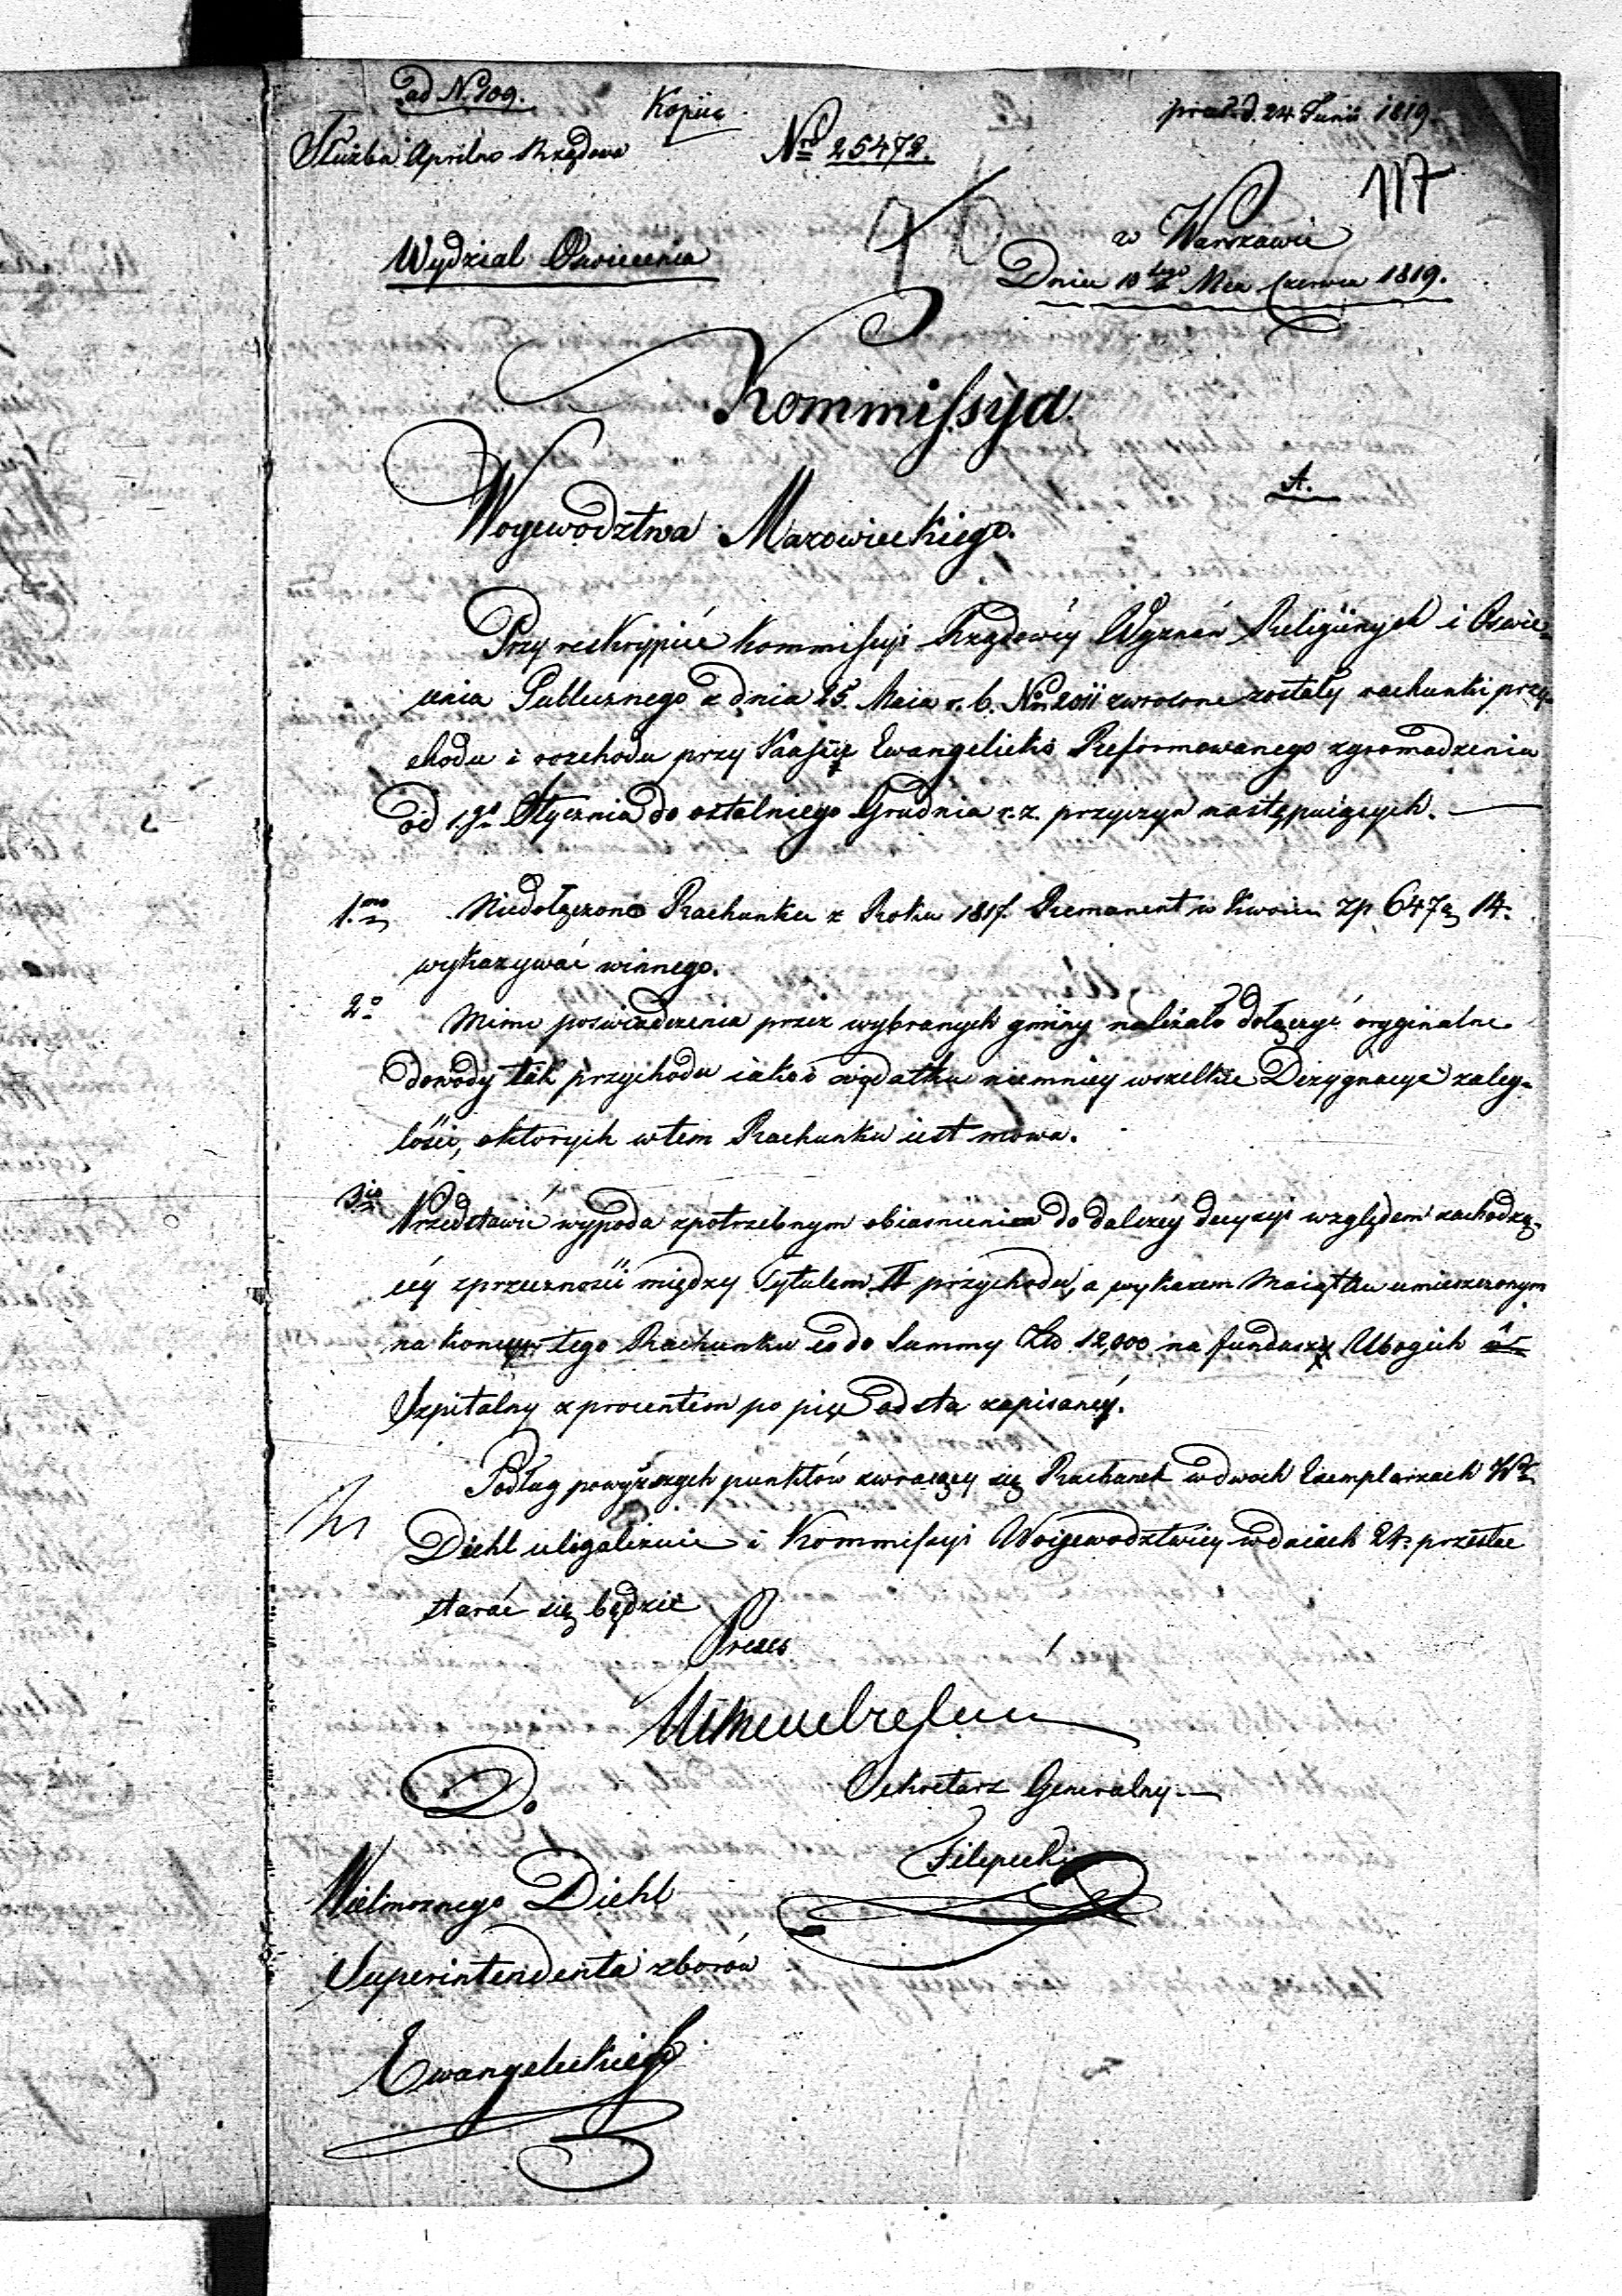 ad N. 109.
Kopiia
praes. d. 24 Junii 1819.
Służba Rządowa
Nro 25472.
117
Wydział Oswiecenia
w Warszawie
Dnia 10tego Mca Czerwca 1819.
Kommissya
A.
Woyewodztwa Mazowieckiego.
Przy reskrypcie Kommissyi Rządowéy Wyznań Religiinych i Oswie-
cenia Publicznego z dnia 25. Maia r. b. Nro 2011 zwrocone zostały rachunki przy-
chodu i rozchodu przy Kassie Ewangelicko Reformowanego zgromadzenia
od 1.go Stycznia do ostatniego Grudnia r. z. przyczyn następuiących.
1.mo Niedołączono Rachunku z Roku 1817. Remanent w kwocie zp. 647 g 14.
wykazywać winnego.
2o Mimo poswiadczenia przez wybranych gminy należało dołączyć oryginalne
dowody tak przychodu iako i wydatku niemniey wszelkie Dezygnacye zaleg-
łości, o ktorych w tem Rachunku iest mowa.
3io Przedstawić wypada z potrzebnym obiasnieniem do dalszéy decyzyi względem zachodzą-
céy sprzeczności między Tytułem II przychodu, a wykazem Maiątku umieszczonym
na koncu tego Rachunku co do Summy Złp 12,000 na fundusz Ubogich i
Szpitalny z procentem po pięć od sta zapisanéy.
Podług powyższych punktów zwracaący się Rachunek w dwoch Exemplarzach W.
Diehl uligalizuie i Kommissyi Woyewodztwiey w dniach 24. przesłać
starać się będzie
Prezes
Sekretarz Generalny
Filipecki
Do
Wielmoznego Diehl
Superintendenta zborów
Ewangelickiego